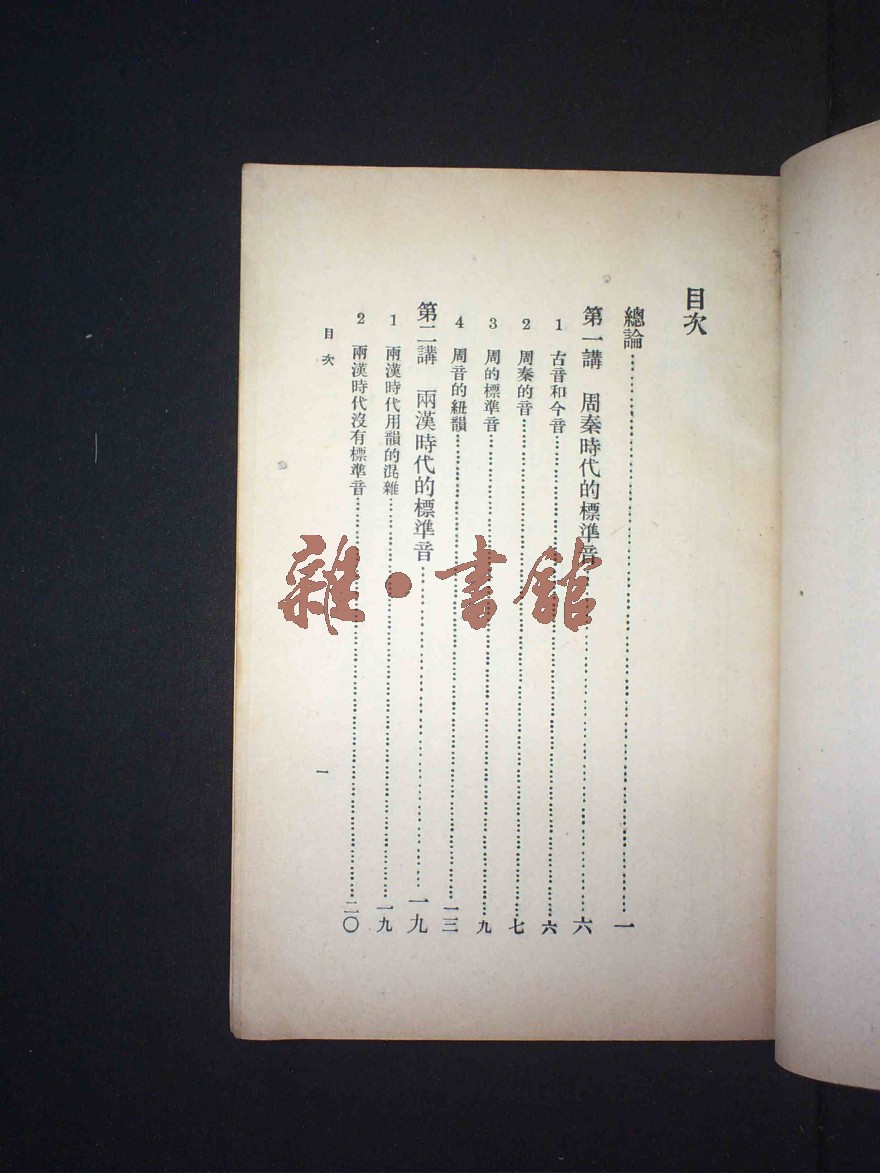 目次
總論 一
第一講 周秦時代的標準音 六
1 古音和今音 六
2 周秦的音 七
3 周的標準音 九
4 周音的紐韻 一三
第二講 兩漢時代的標準音 一九
1 兩漢時代用韻的混雜 一九
2 兩漢時代沒有標準音 二〇
目次 一
雜·書館